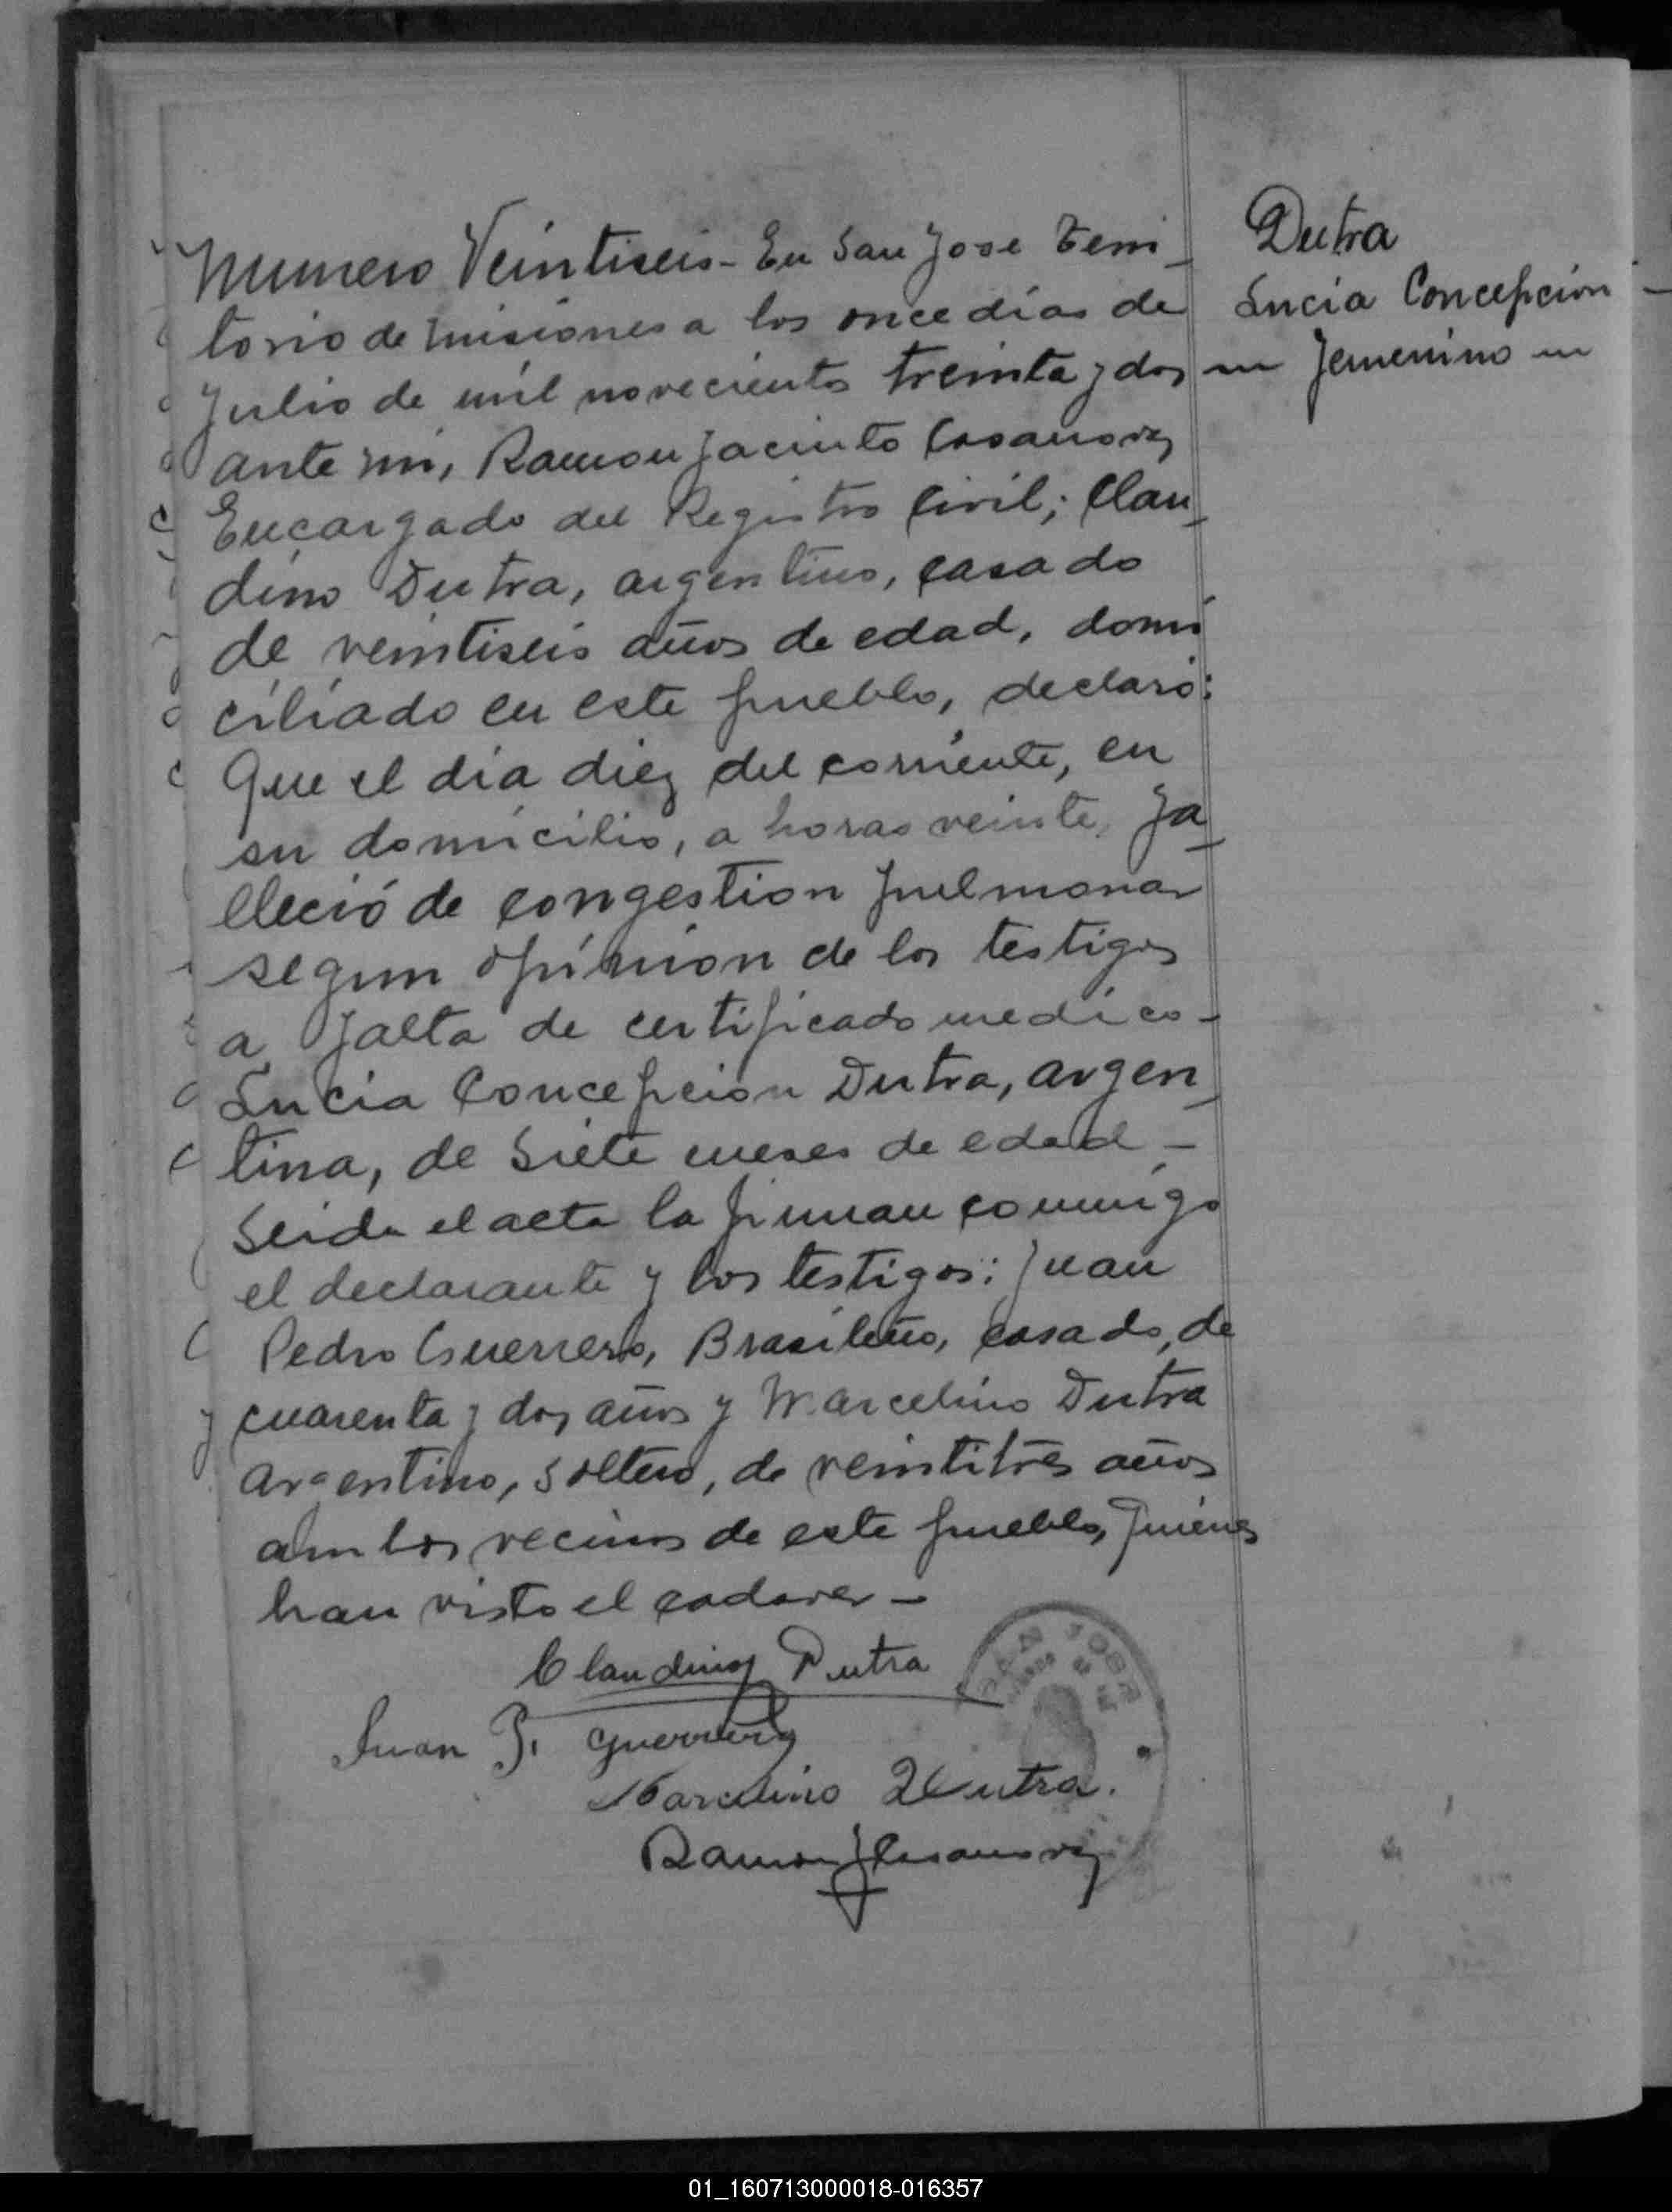 Numero Veintiseis - En San Jose Terri_
torio de Misiones a los once dias de
Julio de mil novecientos treinta y dos
ante mi, Ramon Jacinto Casanova,
Encargado del Registro Civil; Clau_
dino Dutra, argentino, casado
de veintiseis años de edad, domi
ciliado en este pueblo, declaró:
Que el dia diez del corriente, en
su domicilio, a horas veinte, fa_
lleció de congestion pulmonar
segun opinion de los testigos
a falta de certificado medico -
Lucia Concepcion Dutra, argen_
tina, de siete meses de edad -
Leida el acta la firman conmigo
el declarante y los testigos: Juan
Pedro Guerrero, Brasileño, casado, de
cuarenta y dos años y Marcelino Dutra
argentino, soltero, de veintitres años
ambos vecinos de este pueblo, quienes
han visto el cadaver -
Claudino Dutra
Juan P. Guerrero
Marcelino Dutra.
Ramon J Casanova
Dutra
Lucia Concepcion -
Femenino
SAN JOSE
01_160713000018-016357